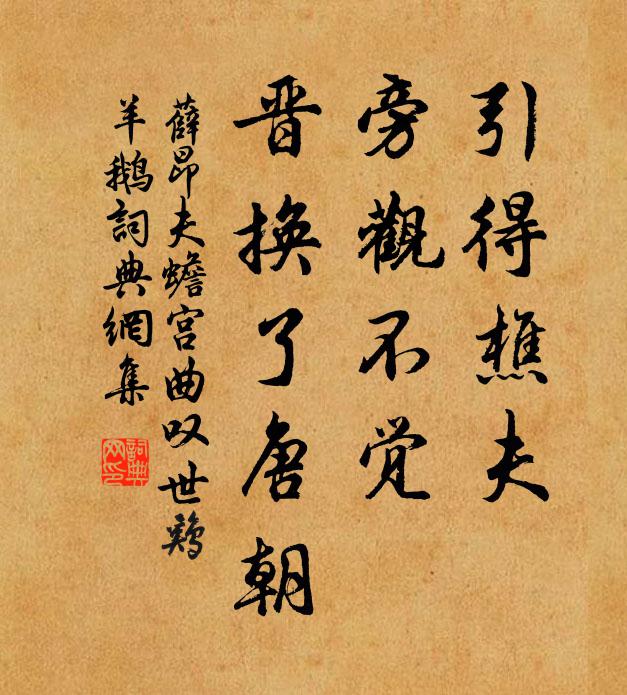 引得樵夫
旁觀不觉
晋換了唐朝
薛昂夫蟾宫曲叹世鷄
羊鵝詞典網集
詞典网印